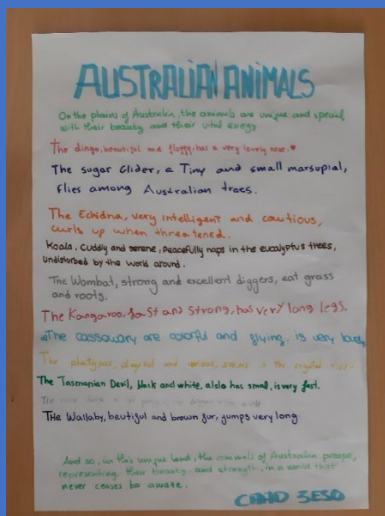 AUSTRALIAN ANIMALS
On the plains of Australia, the animals are unique and special,
with their beauty and their vital energy
The dingo, beautiful and floppy, has a very lovely nose.
The sugar Glider, a Tiny and small marsupial,
flies among Australian trees.
The Echidna, very intelligent and cautious,
curls up when threatened.
Koala, Cuddly and serene, Peacefully naps in the eucalyptus trees,
undisturbed by the world around.
The Wombat, strong and excellent diggers, eat grass
and roots.
The Kangaroo, fast and strong, has very long legs.
The cassowary are colorful and flying, is very
The platypus, playful and swims in the crystal river
The Tasmanian Devil, black and white, has small, is very fast.
The
THe Wallaby, beutiful and brown fur, jumps very long
And so, in this unique land, the animals of Australia, prosper,
representing their beauty and strength, in a world that
never ceases to
3ESO